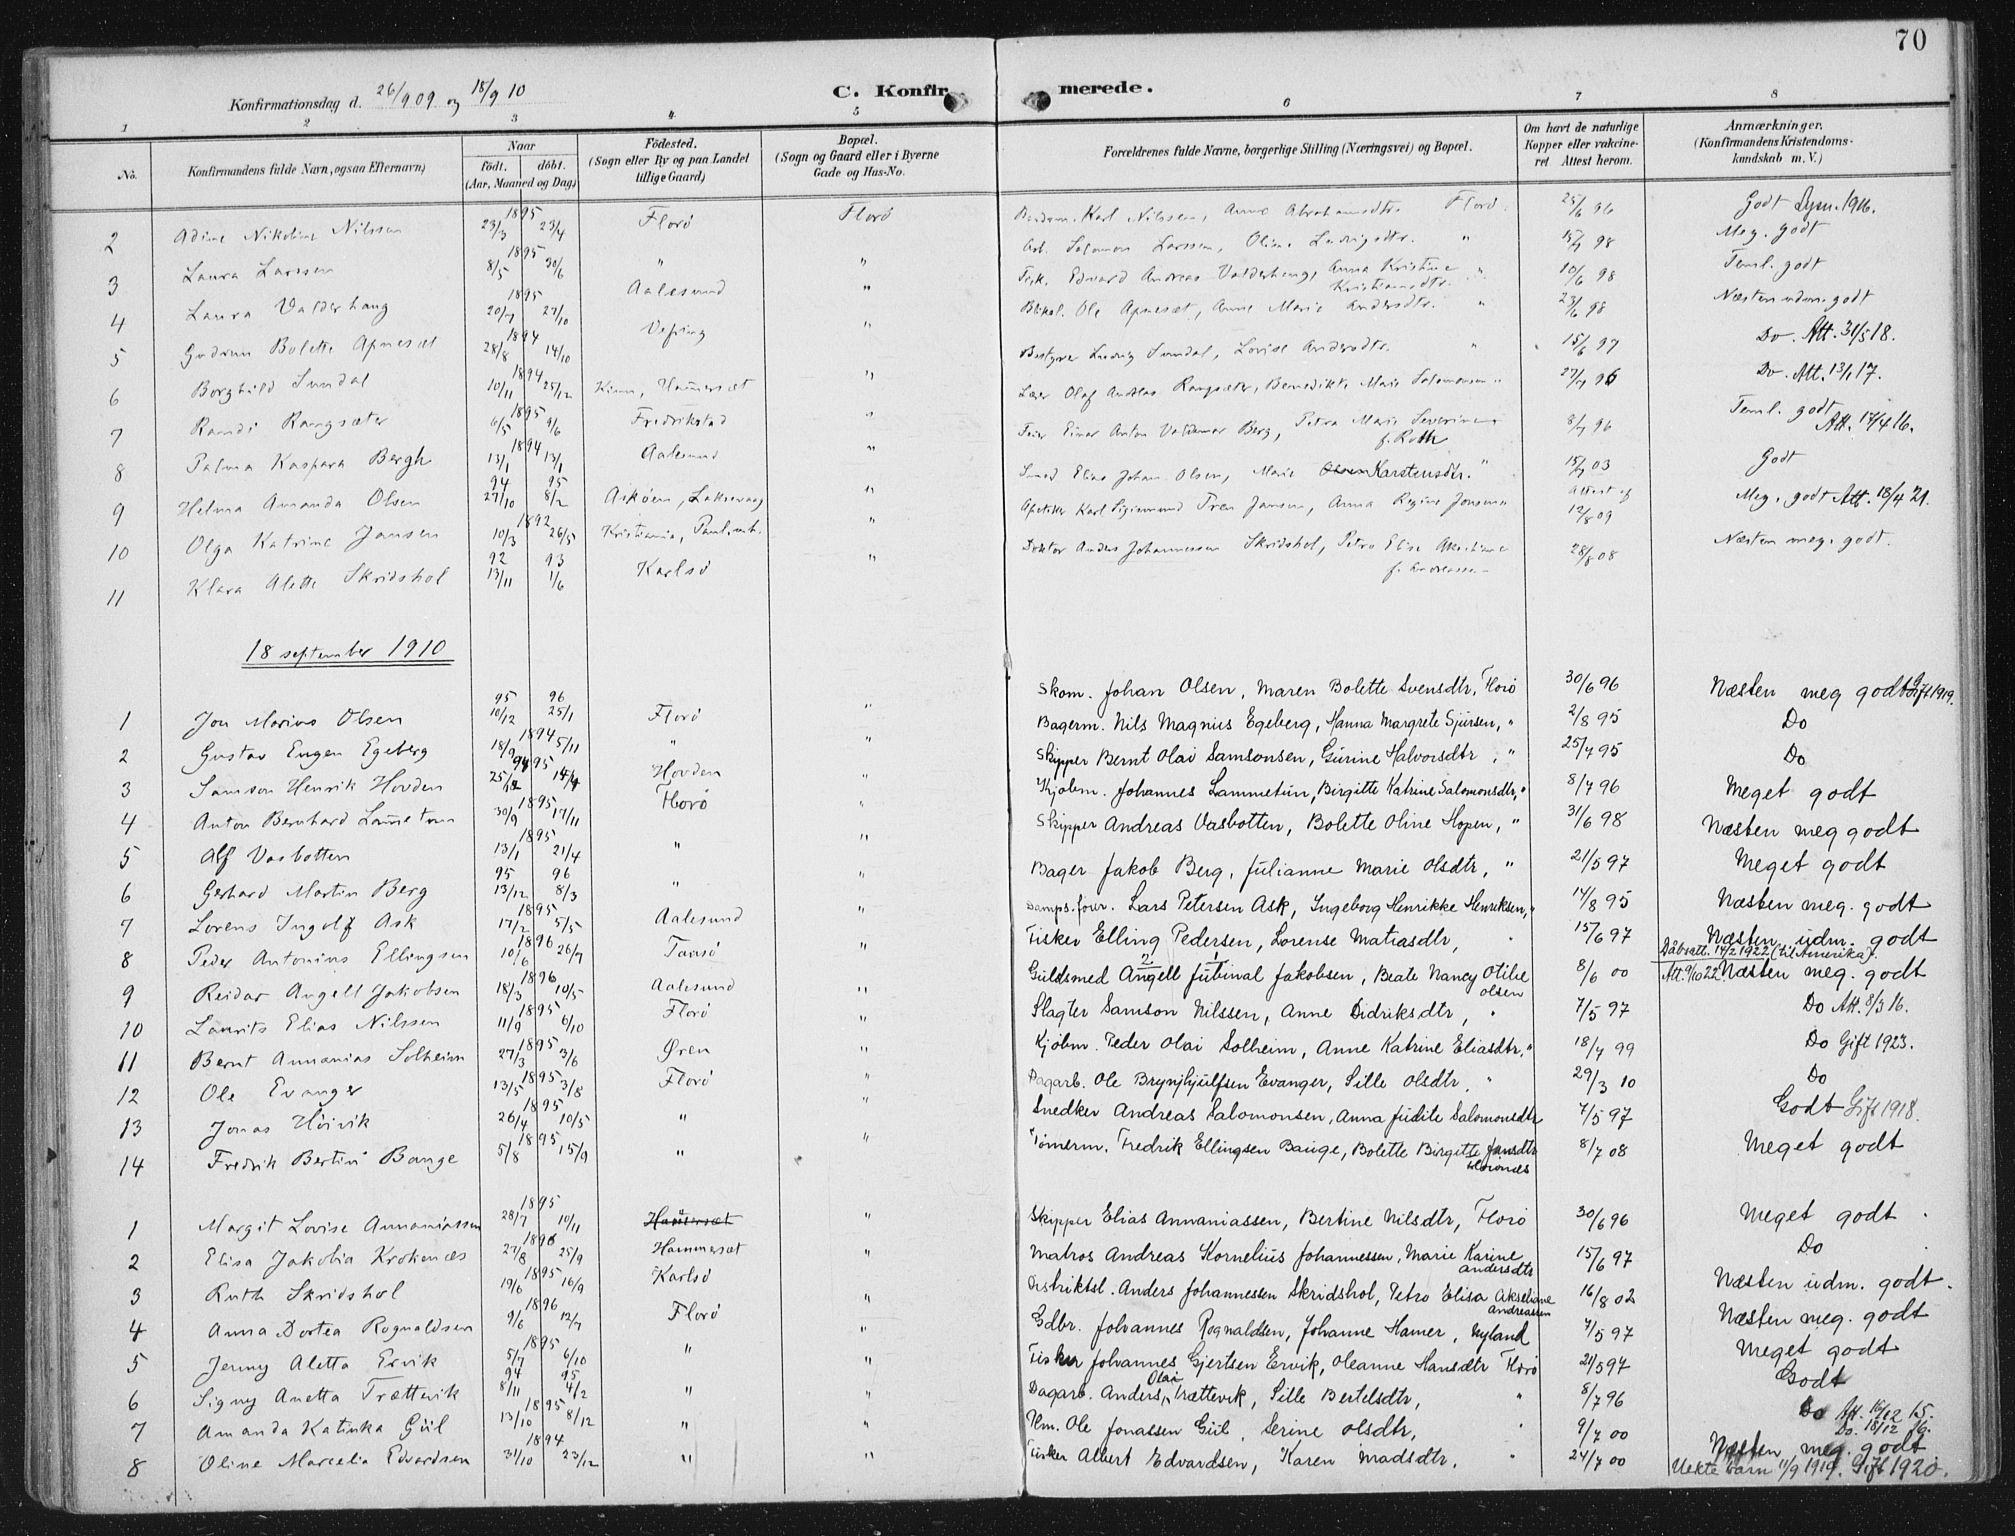 70
Konfirmationsdag d. 26/9 09 og 18/9 10
C. Konfirmerede.
1 2 3 4 5 6 7 8
No. Konfirmandens fulde Navn, ogsaa Efternavn) Naar Født. døbt. (Aar, Maaned og Dag) Fødested. (Sogn eller By og paa Landet tillige Gaard) Bopæl. (Sogn og Gaard eller i Byerne Gade og Hus-No. Forældrenes fulde Navne, borgerlige Stilling (Næringsvei) og Bopæl. Om havt de naturlige Kopper eller vakcineret Attest herom. Anmærkninger. (Konfirmandens Kristendomskundskab m. V.)
2 Adine Nikoline Nilssen 1895 23/3 23/4 Florø Florø Karl Nilssen, Anne Abrahamsdtr. Florø. 25/6 96 Godt Dysm. 1916.
3 Laura Larssen 1895 8/5 30/6 " " Arb. Salomon Larssen, Oline Ludvigsdtr. " 15/7 98 Meg. godt
4 Laura Valderhaug 1895 20/7 27/10 Aalesund " Fisk. Edvard Andreas Valderhaug, Anna Kristine Kristiansdtr. " 10/6 98 Teml. godt
5 Gudrun Bolette Apnesæt 1894 28/8 14/10 Vefring " Ole Apnesæt, Anne Marie Andersdtr. " 23/6 98 Næsten udm. godt
6 Borghild Sundal 1894 10/11 25/12 Kinn, Hammersæt " Bestyrer Ludvig Sundal, Lovise Andersdtr. " 15/6 97 Do. Att. 31/5 18.
7 Randi Rangsæter 1895 6/5 9/6 Fredrikstad " Lærer Olaf Andreas Rangsæter, Benedikte Marie Salomonsen " 27/7 96 Do. Att. 13/1 17.
8 Palma Kaspara Bergh 1894 13/1 13/1 Aalesund " Feier Einar Anton Valdemar Berg, Petra Marie Severine f. Roth 8/7 96 Teml. godt Att. 17/4 16.
9 Helma Amanda Olsen 94 95 27/10 8/2 Askøen, Laksevaag " Smed Elias Johan Olsen, Marie Karstensdtr. " 15/7 03 Godt
10 Olga Katrine Jansen 1892 10/3 26/5 Kristiania, Paul. mh. " Apoteker Karl Sigismund Tren Jansen, Anna Regine Jonsen " Attest af 12/8 09 Meg. godt Att. 18/4 21.
11 Klara Alette Skridshol 92 93 13/11 1/6 Karlsö " Doktor Anders Johannessen Skridshol, Petro Elise Akseliane f. Andreassen 28/8 08 Næsten meg. godt.
18 september 1910
1 Jon Marius Olsen 95 96 10/12 25/1 Florø " Skom. Johan Olsen, Maren Bolette Svensdtr, Florø 30/6 96 Næsten meg godt Gift 1919.
2 Gustav Eugen Egeberg 1894 18/9 5/11 " " Bagerm. Nils Magnus Egeberg, Hanna Margrete Sjursen, " 2/8 95 Do
3 Samson Henrik Hovden 94 95 25/12 14/4 Hovden " Skipper Bernt Olai Samsonsen, Gurine Halvorsdtr, " 25/7 95 Do
4 Anton Bernhard Lammetun 1895 30/9 17/11 Florø " Kjøbm. Johannes Lammetun, Birgitte Katrine Salomonsdtr, " 8/7 96 Meget godt
5 Alf Vasbotten 1895 13/1 21/4 " " Skipper Andreas Vasbotten, Bolette Oline Hopen, " 31/6 98 Næsten meg godt
6 Gerhard Martin Berg 95 96 13/12 8/3 " " Bager Jakob Berg, Julianne Marie Olsdtr, " 21/5 97 Meget godt
7 Lorens Ingolf Ask 1895 17/2 5/5 Aalesund " Damps.fører. Lars Petersen Ask, Ingeborg Henrikke Henriksen, " 14/8 95 Næsten meg. godt
8 Peder Antonius Ellingsen 1896 10/6 26/7 Tansø " Fisker Elling Pedersen, Lorense Matiasdtr, " 15/6 97 Næsten udm. godt
Dåbsatt. 14/2 1922 (til Amerika).
9 Reidar Angell Jakobsen 1896 18/3 10/5 Aalesund " Guldsmed Angell Jubinal Jakobsen, Beate Nancy Otilie Olsen 8/6 00 Att. 9/10 22. Næsten meg. godt
10 Laurits Elias Nilssen 1895 11/9 6/10 Florø " Slagter Samson Nilssen, Anne Didriksdtr, " 7/5 97 Do Att. 8/3 16.
11 Bernt Annanias Solheim 1895 27/3 3/6 Øren " Kjøbm. Peder Olai Solheim, Anne Katrine Eliasdtr, " 18/7 99 Do Gift 1923.
12 Ole Evanger 1895 13/5 3/8 Florø " Dagarb. Ole Brynjhjulfsen Evanger, Sille Olsdtr, " 29/3 10 Do
13 Jonas Høivik 1895 26/4 10/5 " " Snedker Andreas Salomonsen, Anna Judite Salomonsdtr 7/5 97 Godt Gift 1918.
14 Fredrik Bertin Bauge 1895 5/8 15/9 " " Tømerm. Fredrik Ellingsen Bauge, Bolette Birgitte Jansdtr 8/7 08 Meget godt
1 Margit Lovise Annaniassen 1895 28/7 10/11 Hammersæt " Skipper Elias Annaniassen, Bertine Nilsdtr, Florø 30/6 96 Meget godt.
2 Elisa Jakobia Krokenæs 1896 27/8 25/9 Hammersæt " Matros Andreas Kornelius Johannessen, Marie Karine Andersdtr 15/6 97 Do
3 Ruth Skridshol 1895 19/6 16/9 Karlsö " Distriktsl. Anders Johannessen Skridshol, Petro Elisa Akseliane Andreassen 16/8 02 Næsten udm. godt.
4 Anna Dortea Rognaldsen 1896 9/6 12/7 Florø " Gdbr. Johannes Rognaldsen, Johanne Hamer, Nyland 7/5 97 Næsten meg. godt
5 Jenny Aletta Ervik 1895 5/7 6/10 " " Fisker Johannes Gjertsen Ervik, Oleanne Hansdtr Florø 21/5 97 Meget godt
6 Signy Anetta Trættevik 94 95 8/11 4/2 " " Dagarb. Anders Olai Trættevik, Sille Bertelsdtr, " 8/7 96 Godt
7 Amanda Katinka Gül 1895 13/10 8/12 " " Hm. Ole Jonassen Gül, Serine Olsdtr, " 9/7 00 Do Att. 16/12 15. Do. 18/12 16.
8 Oline Marcelia Edvardsen 1894 31/10 23/12 " " Fisker Albert Edvardsen, Karen Madsdtr, " 24/7 00 Næsten meg. godt
Uekte barn 11/9 1919. Gift 1920.